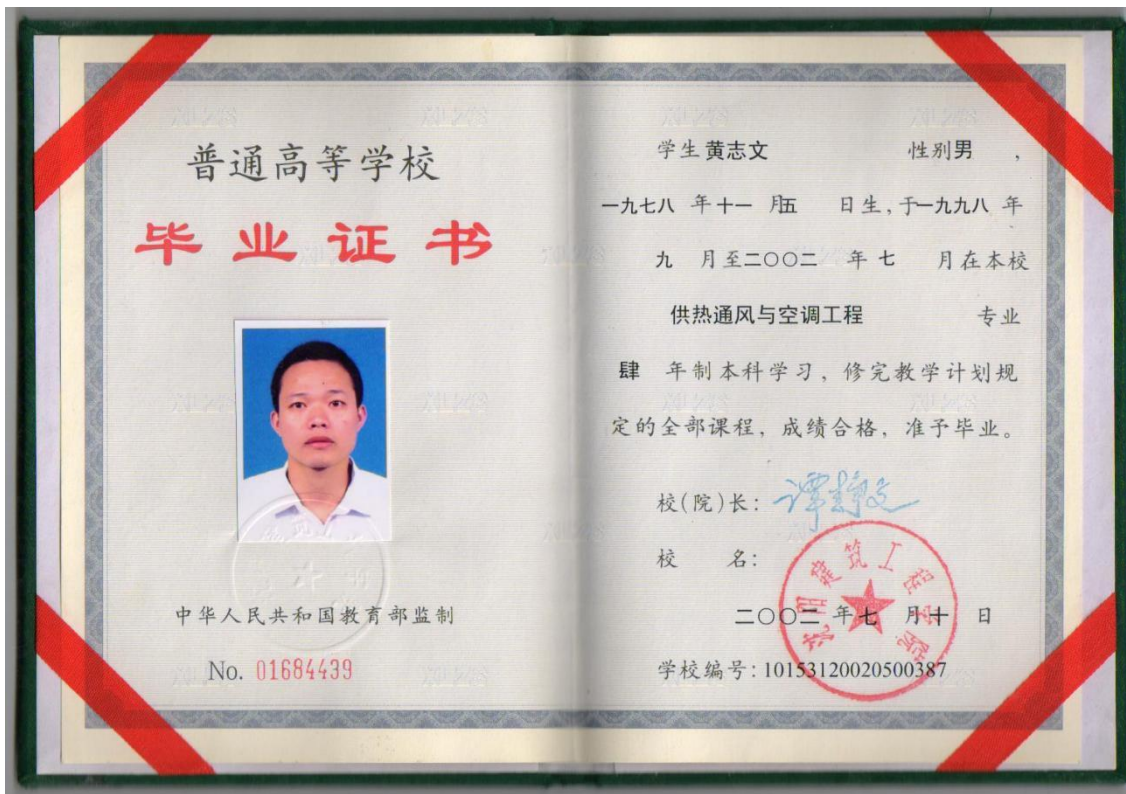 普通高等学校
毕业证书
中华人民共和国教育部监制
No. 01684439
学生 黄志文 性别 男 ,
一九七八 年 十一 月 五 日生, 于 一九九八 年
九 月至 二〇〇二 年 七 月在本校
供热通风与空调工程 专业
肆 年制本科学习, 修完教学计划规
定的全部课程, 成绩合格, 准予毕业。
校(院)长: 谭静文
校 名:
沈阳建筑工程学院
二〇〇二 年 七 月 十 日
学校编号: 10153120020500387